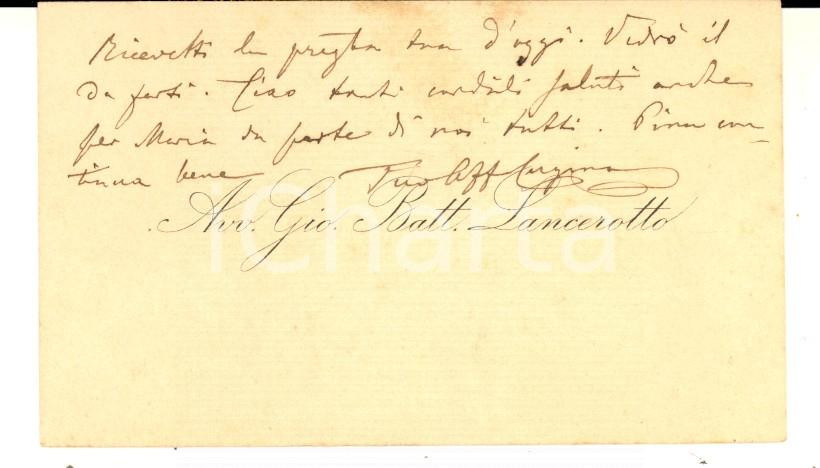 Ricevetti la pregta tua d'oggi. Vedrò il
da farsi. Ciao tanti cordiali saluti anche
per Maria da parte di noi tutti. Pina con-
tinua bene Tuo Aff Cugino
Avv. Gio. Batt. Lancerotto
iCharta